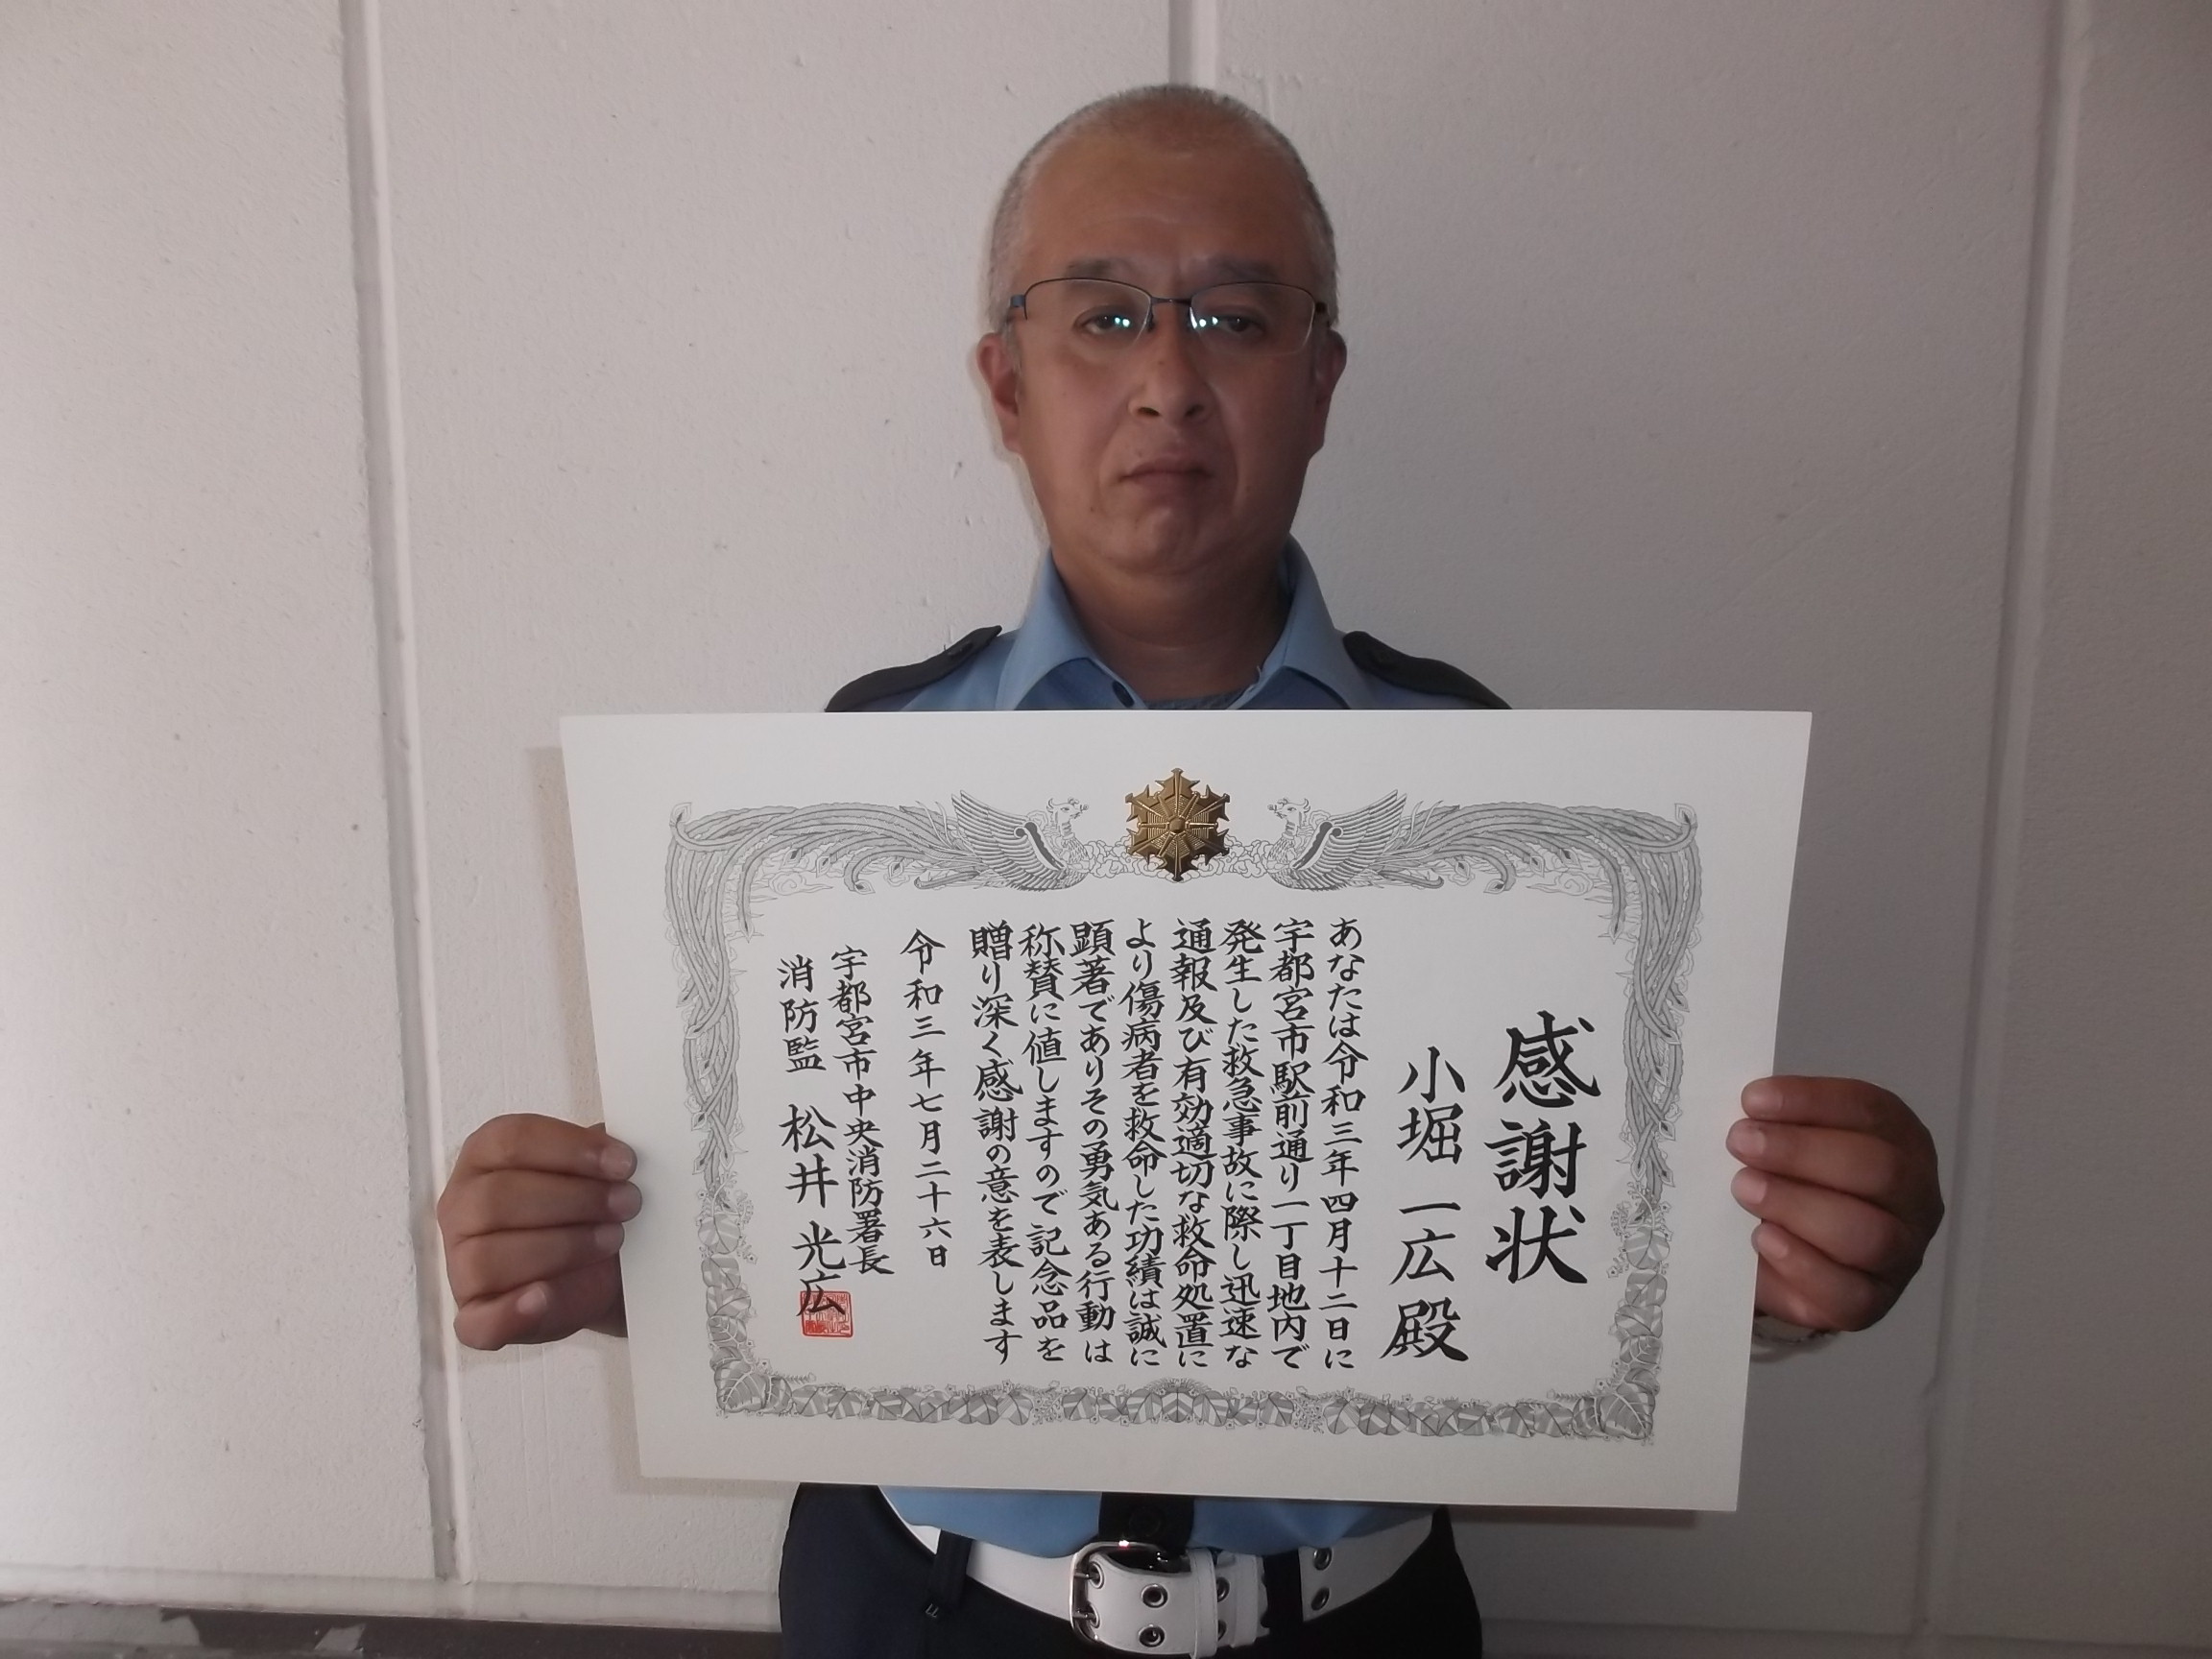 感謝状
小堀 一広 殿
あなたは令和三年四月十二日に
宇都宮市駅前通り一丁目地内で
発生した救急事故に際し迅速な
通報及び有効適切な救命処置に
より傷病者を救命した功績は誠に
顕著でありその勇気ある行動は
称賛に値しますので記念品を
贈り深く感謝の意を表します
令和三年七月二十六日
宇都宮市中央消防署長
消防監 松井 光広